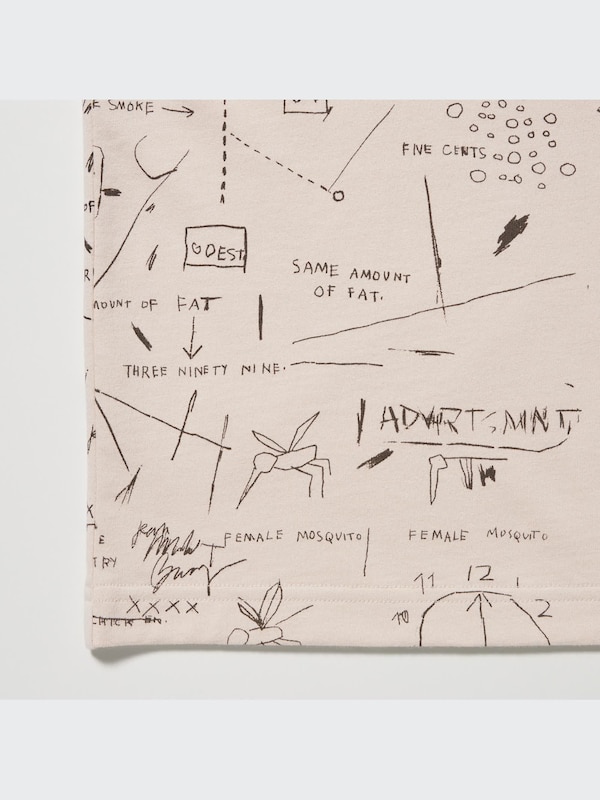 E SMOKE
FIVE CENTS
OF
ODEST
SAME AMOUNT
OF FAT.
R
MOUNT OF FAT
THREE NINETY NINE.
ADVRTSMNT
X
E
FEMALE MOSQUITO
FEMALE MOSQUITO
TRY
11 12 1
XXXX
10 2
CHICKEN.